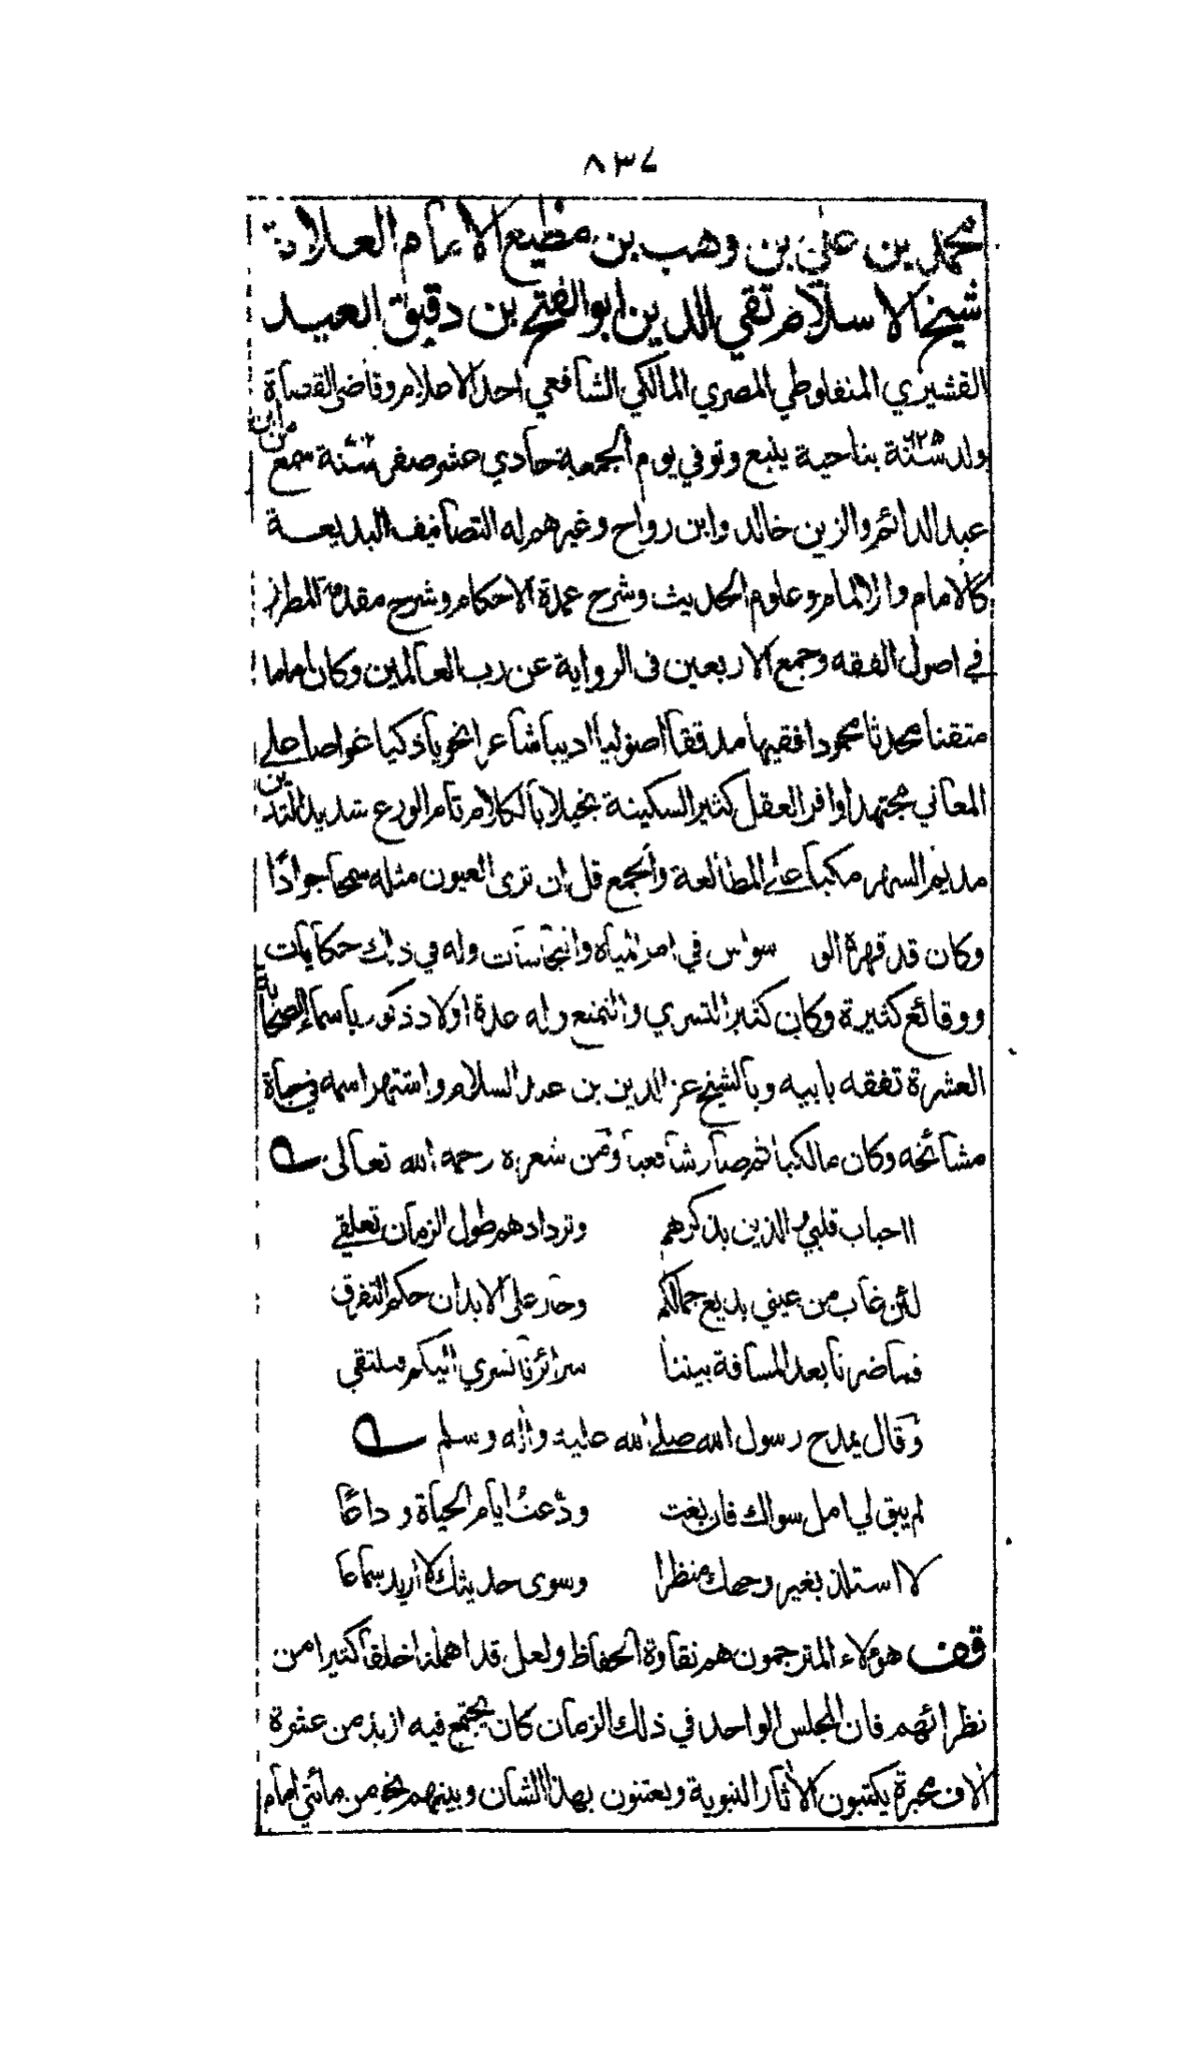 ٨٣٧
محمد بن علي بن وهب بن مطيع الامام العلامة
شيخ الاسلام تقي الدين ابو الفتح بن دقيق العيد
القشيري المنفلوطي المصري المالكي الشافعي احد الاعلام وقاضي القضاة
ولد سنة ٦٢٥ بناحية ينبع وتوفي يوم الجمعة حادي عشر صفر سنة سمع من ابن
عبد الدائم والزين خالد وابن رواح وغيرهم له التصانيف البديعة
كالامام والالمام وعلوم الحديث وشرح عمدة الاحكام وشرح مقدمة المطرز
في اصول الفقه وجمع الاربعين في الرواية عن رب العالمين وكان اماما
متقنا محدثا مجودا فقيها مدققا اصوليا اديبا شاعرا نحويا ذكيا غواصا على
المعاني مجتهدا وافر العقل كثير السكينة بخيلا بالكلام تام الورع شديد التدين
مديم السهر مكبا على المطالعة والجمع قل ان ترى العيون مثله سمحا جوادًا
وكان قد قهره الو سواس في امر المياه والنجاسات وله في ذلك حكايات
ووقائع كثيرة وكان كثير التسري والتمتع وله عدة اولاد ذكور باسماء الصحابة
العشرة تفقه بابيه وبالشيخ عز الدين بن عبد السلام واشتهر اسمه في حياة
مشائخه وكان مالكيا ثم صار شافعيا ومن شعره رحمه الله تعالى
ااحباب قلبي والذين بذكرهم وترداد هم طول الزمان تعلقي
لئن غاب من عيني بديع جمالكم وجار على الابدان حكم التفرق
فما ضرنا بعد المسافة بيننا سرائرنا تسري اليكم فنلتقي
وقال يمدح رسول الله صلى الله عليه واله وسلم
لم يبق لي امل سواك فان يفت ودّعتُ ايام الحياة وداعًا
لا استلذ بغير وجهك منظرا وسوى حديثك لا اريد سماعا
قف هؤلاء المترجمون هم نقاوة الحفاظ ولعل قد اهملنا خلقا كثيرا من
نظرائهم فان المجلس الواحد في ذلك الزمان كان يجتمع فيه ازيد من عشرة
الاف محبرة يكتبون الاثار النبوية ويعتنون بهذا الشان وبينهم نحو من مائتي امام